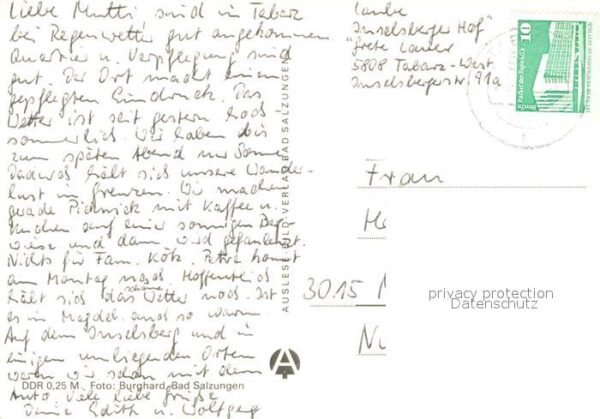 Liebe Mutti, sind in Tabarz
bei Regenwetter gut angekommen.
Quartier u. Verpflegung sind
gut. Der Ort macht einen
gepflegten Eindruck. Das
Wetter ist seit gestern hoch
sommerlich. Wir haben bis
zum späten Abend nur Sonne.
Dadurch hält sich unsere Wander-
lust in Grenzen. Wir machen
gerade Picknick mit Kaffee u.
Kuchen auf einer sonnigen Berg-
wiese und dann wird gefaulenzt.
Nichts für Fam. Petra kommt
am Montag nach. Hoffentlich
hält sich das schöne Wetter noch. Ist
es in Magdeb. auch so warm.
Auf dem Inselsberg und in
einigen umliegenden Orten
waren wir schon mit dem
Auto. Viele liebe Grüße
Deine Edith u. Wolfgang
DDR 0,25 M Foto: Burghard, Bad Salzungen
AUSLESE-BILD-VERLAG BAD SALZUNGEN
Laube
"Inselsberger Hof"
5808 Tabarz-West
Inselsbergerstr. 91a
10
Berlin, Palast der Republik
DDR
Frau
30.15
privacy protection
Datenschutz